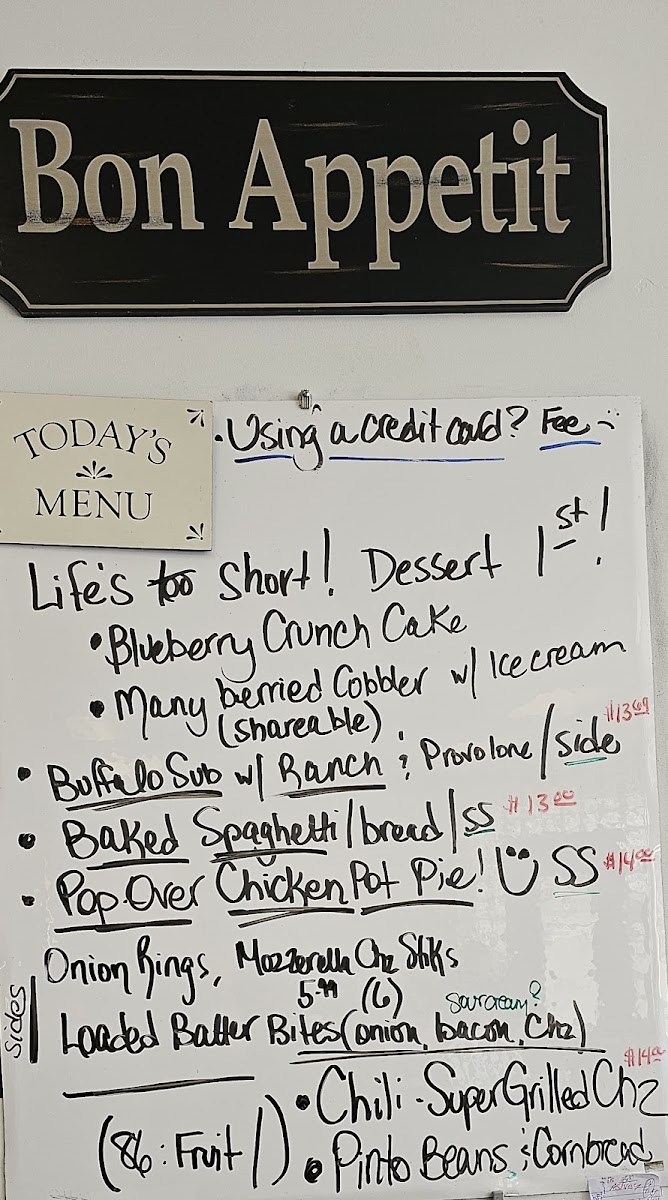 Bon Appetit
TODAY'S
MENU
. Using a credit card? Fee
Life's too Short! Dessert 1st!
• Blueberry Crunch Cake
• Many berried Cobbler w/ Ice cream
(shareable)
• Buffalo Sub w/ Ranch & Provolone/side $13.69
• Baked Spaghetti/bread/SS $13.00
• Pop-Over Chicken Pot Pie! SS $14.00
Onion Rings, Mozzerella Chz Stiks
5.99 (6)
sour cream?
Sides
Loaded Batter Bites (onion, bacon, Chz)
$14.00
• Chili - Super Grilled Chz
(86: Fruit /)
• Pinto Beans & Cornbread